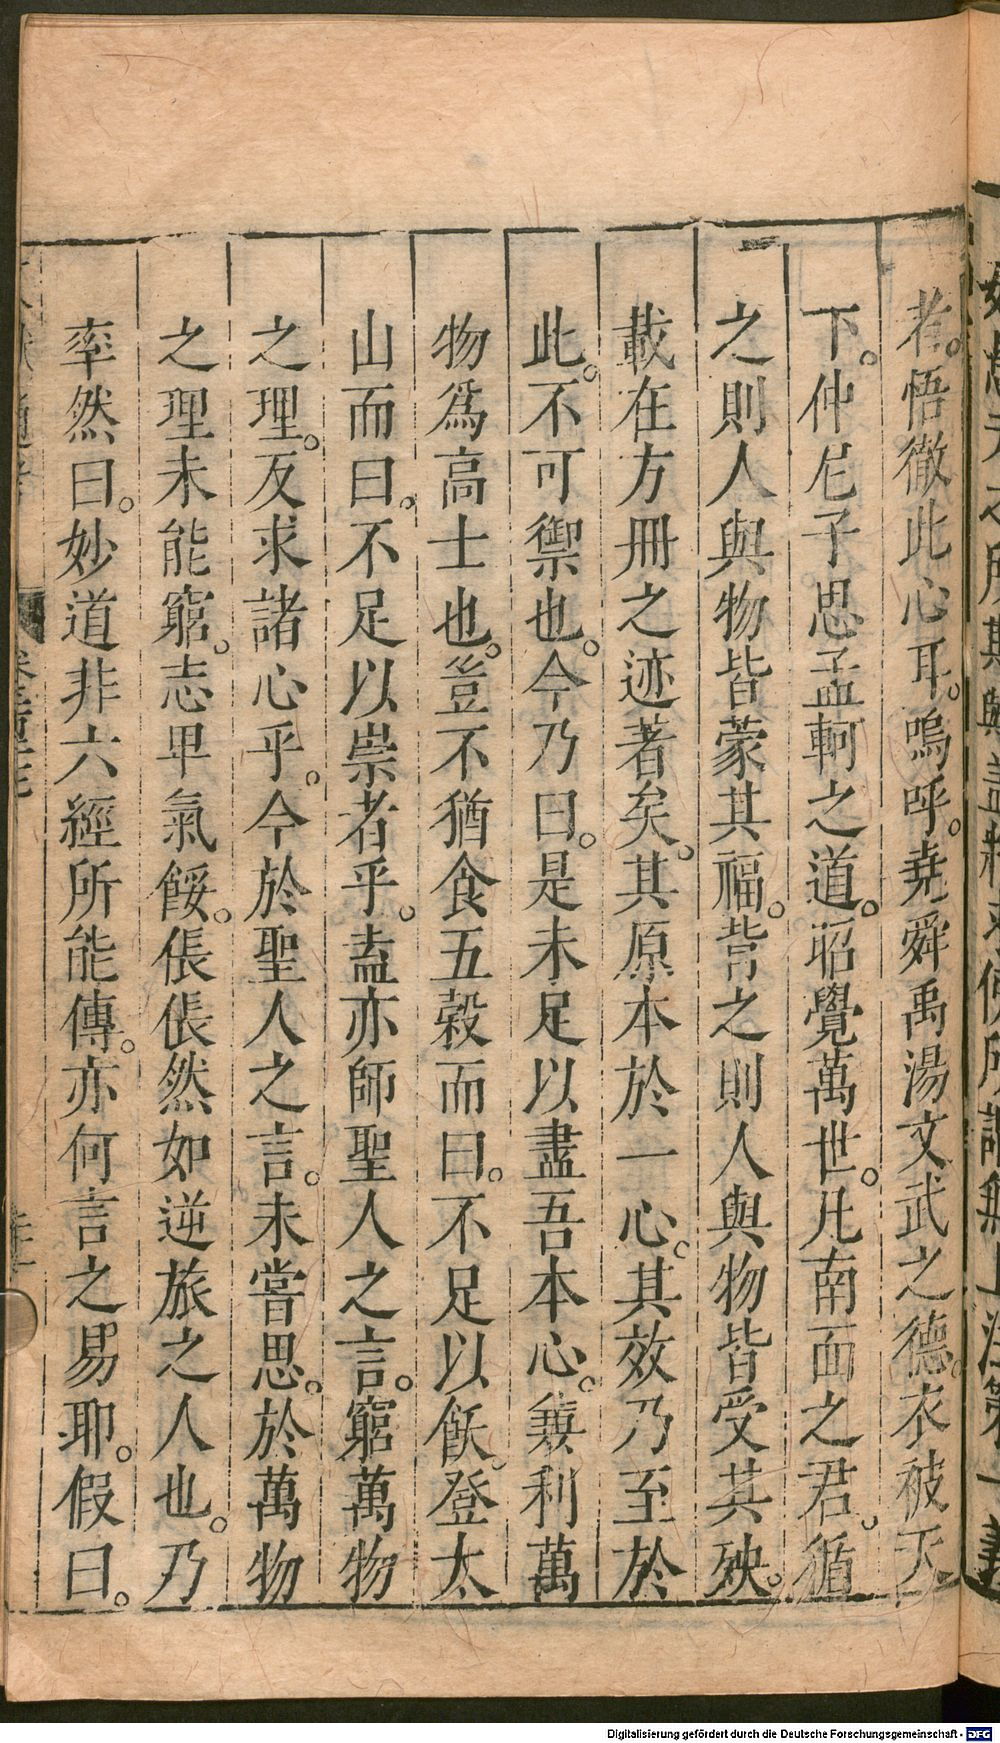 者。悟徹此心耳。嗚呼。堯舜禹湯文武之德。衣被天
下。仲尼子思孟軻之道。昭覺萬世。凡南面之君。循
之則人與物皆蒙其福。背之則人與物皆受其殃。
載在方冊之迹著矣。其原本於一心。其效乃至於
此。不可禦也。今乃曰。是未足以盡吾本心。兼利萬
物爲高士也。豈不猶食五穀而曰。不足以飫。登太
山而曰。不足以崇者乎。盍亦師聖人之言。窮萬物
之理。反求諸心乎。今於聖人之言。未嘗思。於萬物
之理未能窮。志卑氣餒。倀倀然如逆旅之人也。乃
率然曰。妙道非六經所能傳。亦何言之易耶。假曰。
Digitalisierung gefördert durch die Deutsche Forschungsgemeinschaft - DFG